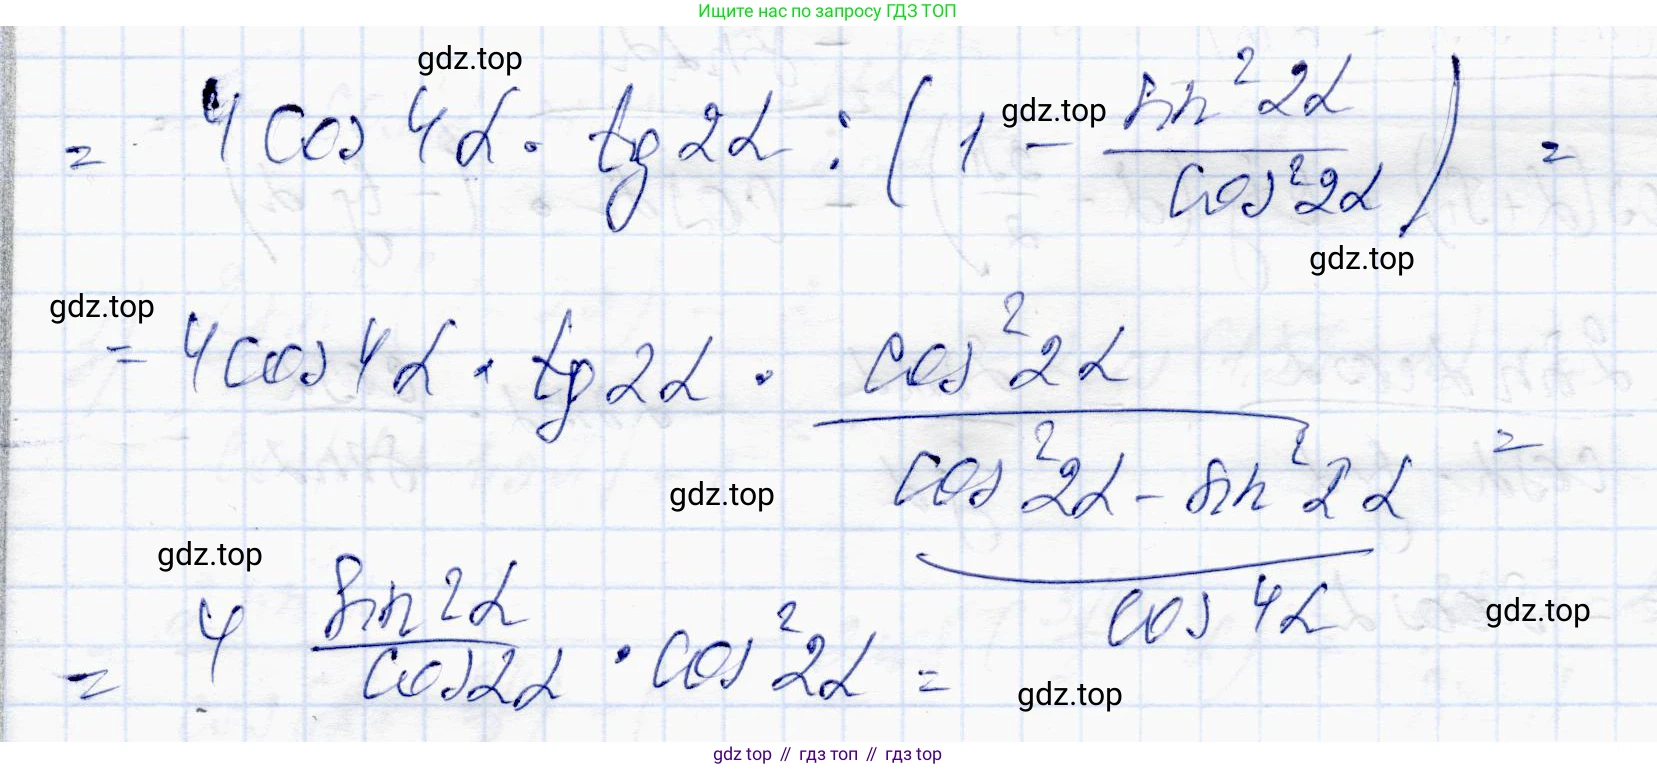 Ищите нас по запросу ГДЗ ТОП
gdz.top
= 4 cos 4α · tg 2α : (1 - sin² 2α / cos² 2α) =
gdz.top
gdz.top
gdz.top
= 4 cos 4α · tg 2α · cos² 2α / (cos² 2α - sin² 2α) =
gdz.top
gdz.top
cos 4α
gdz.top
= 4 sin 2α / cos 2α · cos² 2α =
gdz.top
gdz top // гдз топ // gdz top